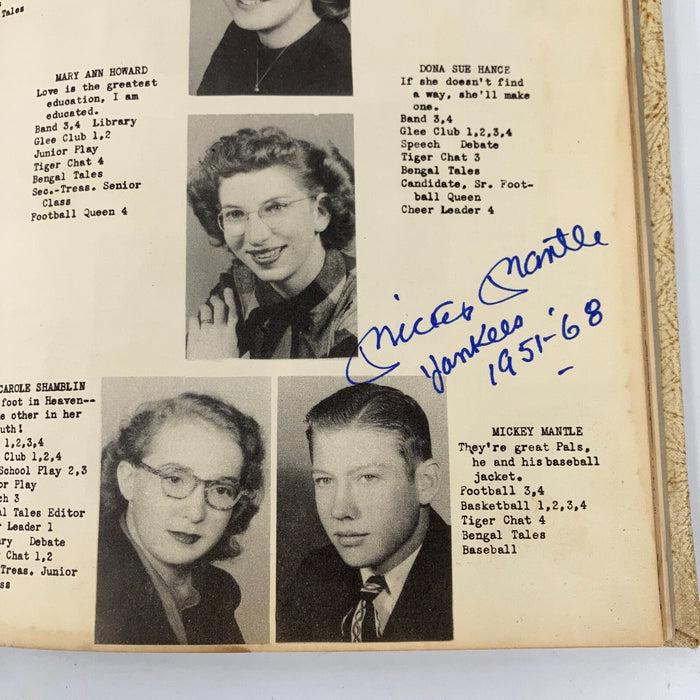 Tales
MARY ANN HOWARD
Love is the greatest
education, I am
educated.
Band 3,4 Library
Glee Club 1,2
Junior Play
Tiger Chat 4
Bengal Tales
Sec.-Treas. Senior
Class
Football Queen 4
DONA SUE HANCE
If she doesn't find
a way, she'll make
one.
Band 3,4
Glee Club 1,2,3,4
Speech Debate
Tiger Chat 3
Bengal Tales
Candidate, Sr. Foot-
ball Queen
Cheer Leader 4
Mickey Mantle
Yankees
1951-'68
CAROLE SHAMBLIN
foot in Heaven--
e other in her
uth!
1,2,3,4
Club 1,2,4
School Play 2,3
or Play
ch 3
l Tales Editor
r Leader 1
ry Debate
Chat 1,2
Treas. Junior
ss
MICKEY MANTLE
They're great Pals,
he and his baseball
jacket.
Football 3,4
Basketball 1,2,3,4
Tiger Chat 4
Bengal Tales
Baseball